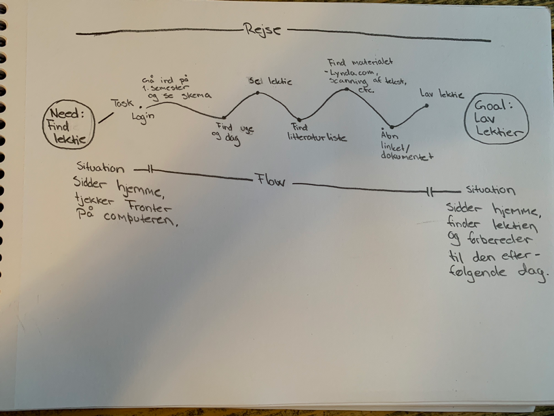 Rejse
Need:
Find
lektie
Task
Login
Gå ind på
1. semester
og se skema
Find uge
og dag
Se lektie
Find
litteraturliste
Find materialet
- Lynda.com,
scanning af tekst,
etc.
Åbn
linket/
dokumentet
Lav lektie
Goal:
Lav
Lektier
Situation
Flow
Situation
Sidder hjemme,
tjekker Fronter
På computeren.
Sidder hjemme,
finder lektien
og forbereder
til den efter-
følgende dag.